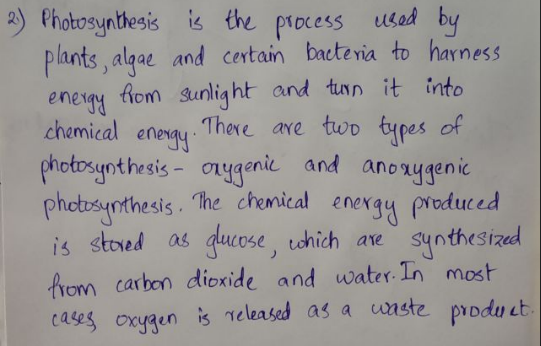 2.) Photosynthesis is the process used by
plants, algae and certain bacteria to harness
energy from sunlight and turn it into
chemical energy. There are two types of
photosynthesis - oxygenic and anoxygenic
photosynthesis. The chemical energy produced
is stored as glucose, which are synthesized
from carbon dioxide and water. In most
cases, oxygen is released as a waste product.